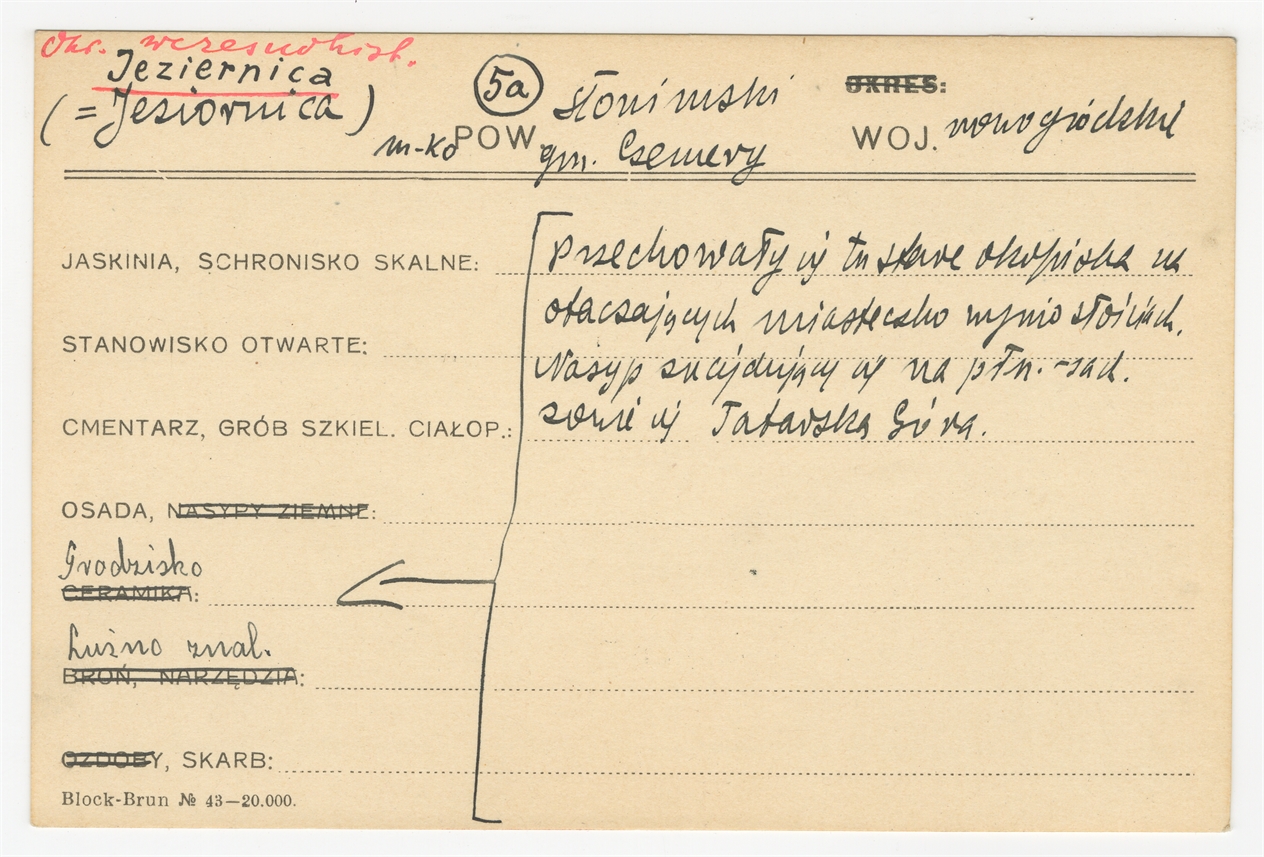 Okr. wczesnohist.
Jeziernica
(= Jesiornica)
m-ko
5a
POW. słonimski
gm. Czemery
OKRES:
WOJ. nowogródzkie
JASKINIA, SCHRONISKO SKALNE:
STANOWISKO OTWARTE:
CMENTARZ, GRÓB SZKIEL. CIAŁOP.:
OSADA, NASYPY ZIEMNE:
Grodzisko
CERAMIKA:
Luźno znal.
BROŃ, NARZĘDZIA:
OZDOBY, SKARB:
Block-Brun № 43—20.000.
Przechowały się tu stare okopiska na
otaczających miasteczko wyniosłościach.
Nasyp znajdujący się na płn.-zach.
zowie się Tatarska Góra.